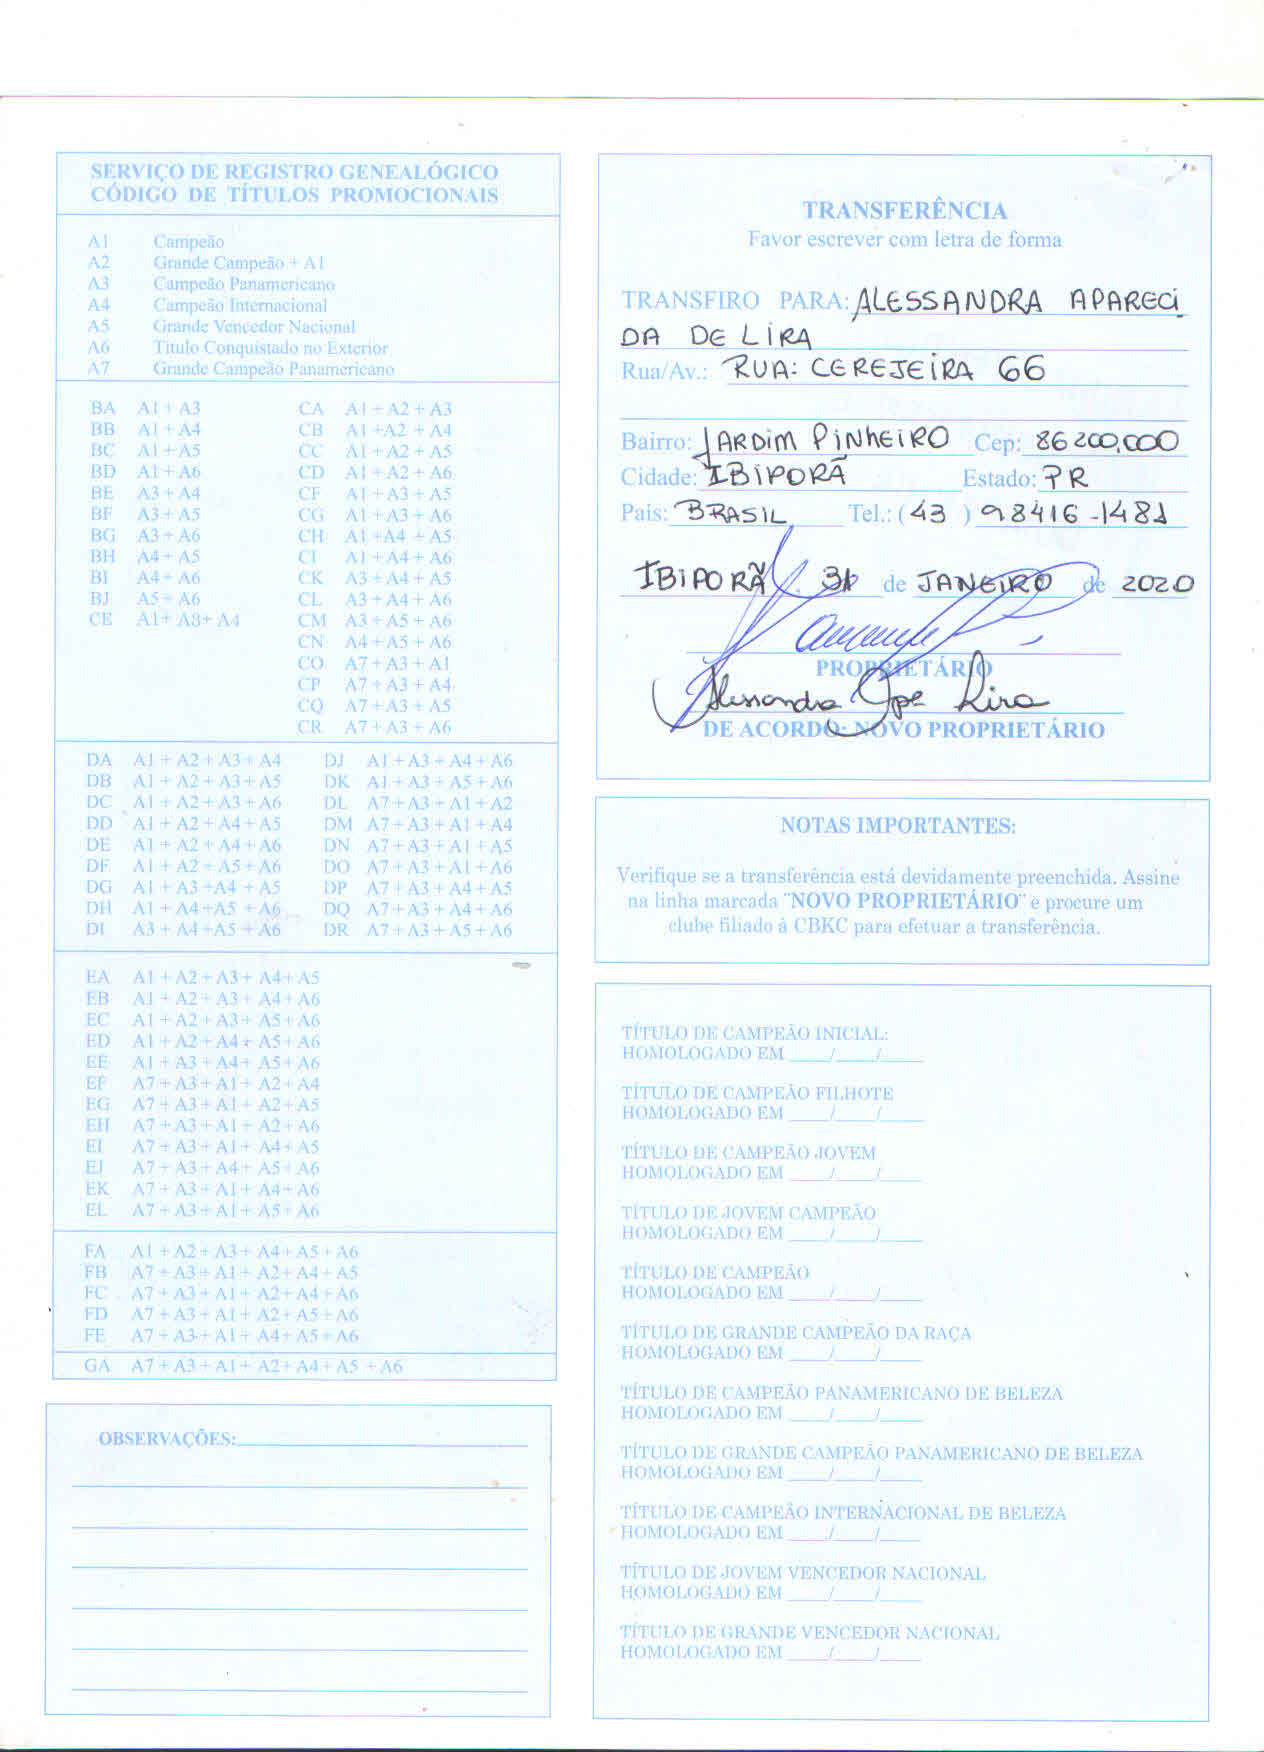 SERVIÇO DE REGISTRO GENEALÓGICO
CÓDIGO DE TÍTULOS PROMOCIONAIS
A1 Campeão
A2 Grande Campeão + A1
A3 Campeão Panamericano
A4 Campeão Internacional
A5 Grande Vencedor Nacional
A6 Titulo Conquistado no Exterior
A7 Grande Campeão Panamericano
BA A1 + A3 CA A1 + A2 + A3
BB A1 + A4 CB A1 +A2 + A4
BC A1 + A5 CC A1 + A2 + A5
BD A1 + A6 CD A1 + A2 + A6
BE A3 + A4 CF A1 + A3 + A5
BF A3 + A5 CG A1 + A3 + A6
BG A3 + A6 CH A1 +A4 + A5
BH A4 + A5 CI A1 + A4 + A6
BI A4 + A6 CK A3 + A4 + A5
BJ A5 + A6 CL A3 + A4 + A6
CE A1+ A3+ A4 CM A3 + A5 + A6
CN A4 + A5 + A6
CO A7 + A3 + A1
CP A7 + A3 + A4
CQ A7 + A3 + A5
CR A7 + A3 + A6
DA A1 + A2 + A3 + A4 DJ A1 + A3 + A4 + A6
DB A1 + A2 + A3 + A5 DK A1 + A3 + A5 + A6
DC A1 + A2 + A3 + A6 DL A7 + A3 + A1 + A2
DD A1 + A2 + A4 + A5 DM A7 + A3 + A1 + A4
DE A1 + A2 + A4 + A6 DN A7 + A3 + A1 + A5
DF A1 + A2 + A5 + A6 DO A7 + A3 + A1 + A6
DG A1 + A3 +A4 + A5 DP A7 + A3 + A4 + A5
DH A1 + A4 +A5 + A6 DQ A7 + A3 + A4 + A6
DI A3 + A4 +A5 + A6 DR A7 + A3 + A5 + A6
EA A1 + A2 + A3 + A4 + A5
EB A1 + A2 + A3 + A4 + A6
EC A1 + A2 + A3 + A5 + A6
ED A1 + A2 + A4 + A5 + A6
EE A1 + A3 + A4 + A5 + A6
EF A7 + A3 + A1 + A2 + A4
EG A7 + A3 + A1 + A2 + A5
EH A7 + A3 + A1 + A2 + A6
EI A7 + A3 + A1 + A4 + A5
EJ A7 + A3 + A4 + A5 + A6
EK A7 + A3 + A1 + A4 + A6
EL A7 + A3 + A1 + A5 + A6
FA A1 + A2 + A3 + A4 + A5 + A6
FB A7 + A3 + A1 + A2 + A4 + A5
FC A7 + A3 + A1 + A2 + A4 + A6
FD A7 + A3 + A1 + A2 + A5 + A6
FE A7 + A3 + A1 + A4 + A5 + A6
GA A7 + A3 + A1 + A2 + A4 + A5 + A6
OBSERVAÇÕES:
TRANSFERÊNCIA
Favor escrever com letra de forma
TRANSFIRO PARA: ALESSANDRA APARECI
DA DE LIRA
Rua/Av.: RUA: CEREJEIRA 66
Bairro: JARDIM PINHEIRO Cep: 86200,000
Cidade: IBIPORÃ Estado: PR
Pais: BRASIL Tel.: ( 43 ) 98416-1481
IBIPORÃ, 31 de JANEIRO de 2020
PROPRIETÁRIO
Alessandra Ape Lira
DE ACORDO: NOVO PROPRIETÁRIO
NOTAS IMPORTANTES:
Verifique se a transferência está devidamente preenchida. Assine
na linha marcada "NOVO PROPRIETÁRIO" e procure um
clube filiado à CBKC para efetuar a transferência.
TÍTULO DE CAMPEÃO INICIAL:
HOMOLOGADO EM ____/____/____
TÍTULO DE CAMPEÃO FILHOTE
HOMOLOGADO EM ____/____/____
TÍTULO DE CAMPEÃO JOVEM
HOMOLOGADO EM ____/____/____
TÍTULO DE JOVEM CAMPEÃO
HOMOLOGADO EM ____/____/____
TÍTULO DE CAMPEÃO
HOMOLOGADO EM ____/____/____
TÍTULO DE GRANDE CAMPEÃO DA RAÇA
HOMOLOGADO EM ____/____/____
TÍTULO DE CAMPEÃO PANAMERICANO DE BELEZA
HOMOLOGADO EM ____/____/____
TÍTULO DE GRANDE CAMPEÃO PANAMERICANO DE BELEZA
HOMOLOGADO EM ____/____/____
TÍTULO DE CAMPEÃO INTERNACIONAL DE BELEZA
HOMOLOGADO EM ____/____/____
TÍTULO DE JOVEM VENCEDOR NACIONAL
HOMOLOGADO EM ____/____/____
TÍTULO DE GRANDE VENCEDOR NACIONAL
HOMOLOGADO EM ____/____/____